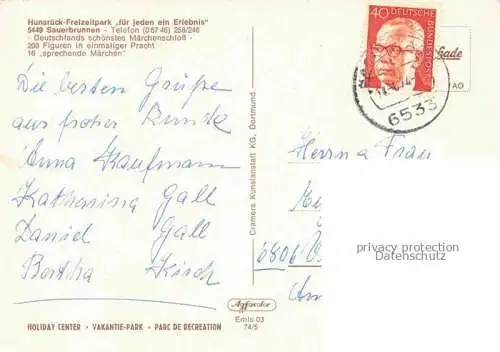 Hunsrück-Freizeitpark „für jeden ein Erlebnis"
5449 Sauerbrunnen - Telefon (0 67 46) 258/246
- Deutschlands schönstes Märchenschloß -
200 Figuren in einmaliger Pracht
16 „sprechende Märchen"
Die besten Grüße
aus froher Runde
Anna Kaufmann
Katharina Gall
Daniel Gall
Bertha Kisch
Cramers Kunstanstalt KG, Dortmund
40 DEUTSCHE BUNDESPOST
6533
AO
Herrn u Frau
6806
privacy protection
Datenschutz
Agfacolor
Emls 03
74/5
HOLIDAY CENTER · VAKANTIE-PARK · PARC DE RECREATION